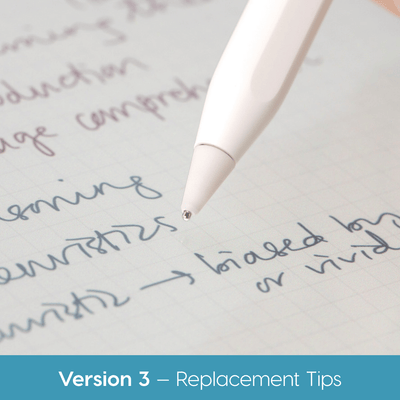 oduction
age comprehe
soning
euristics
uristic → biased by
or vivid
Version 3 – Replacement Tips